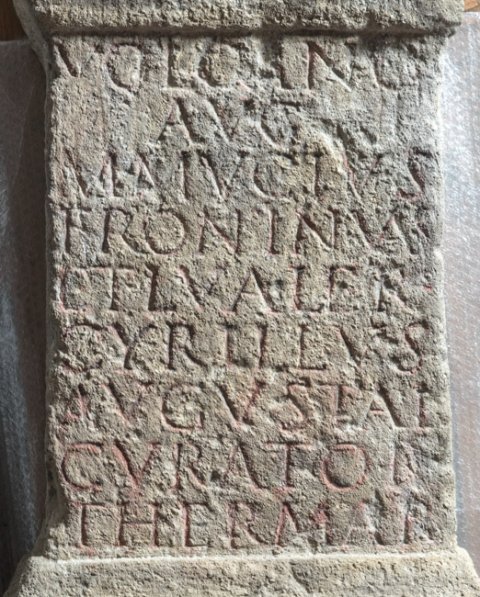 VOLCANO
AVG
MAIVCIVS
FRONINVS
ET L VALER
CYRILLVS
AVGVSTAL
CVRATOR
THERMAR